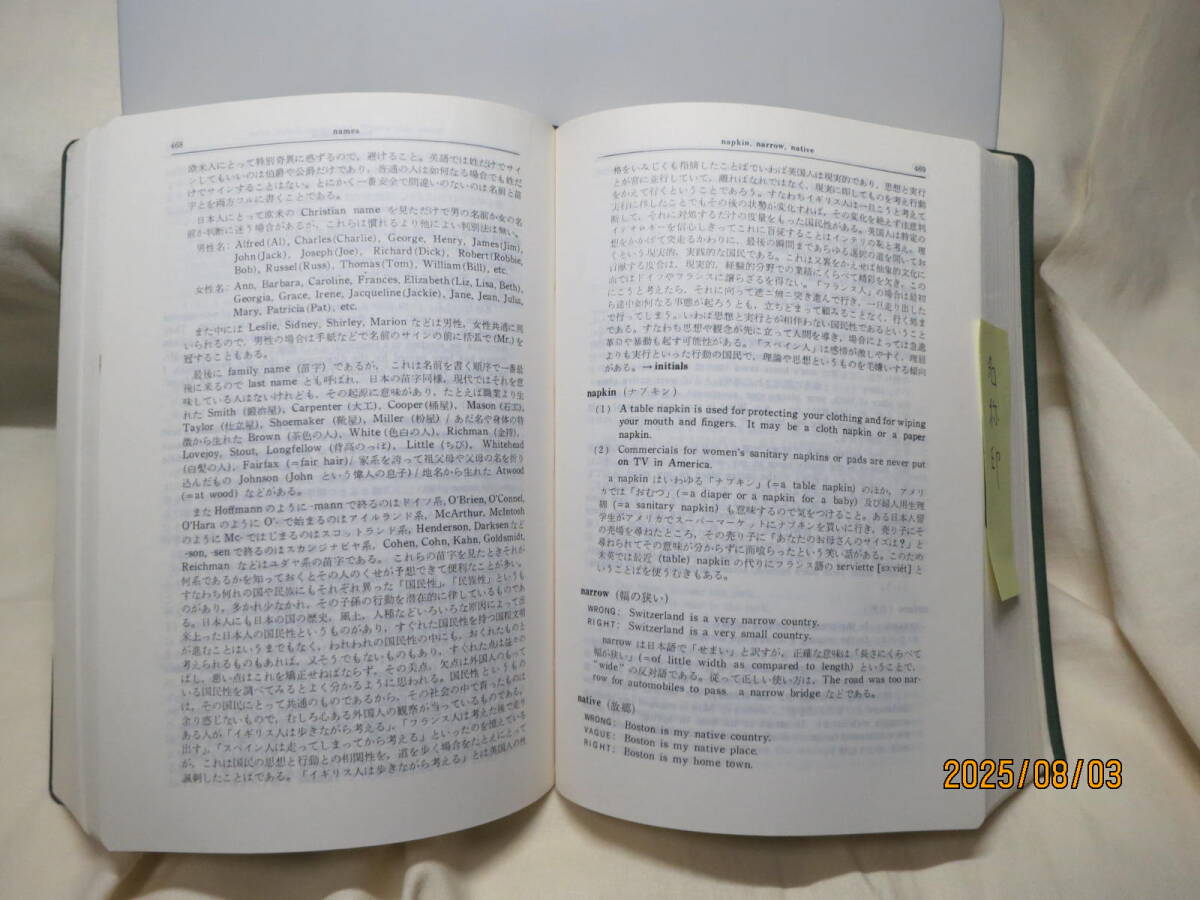 468
names
欧米人にとって特別奇異に感ずるので，避けること。英語では姓だけでサイ
ンしてもいいのは伯爵や公爵だけであり，普通の人は如何なる場合でも姓だ
けでサインすることはない。とにかく一番安全で間違いのないのは名前と苗
字とを両方フルに書くことである。
日本人にとって欧米の Christian name を見ただけで男の名前か女の名
前か判断に迷う場合があるが，これらは慣れるより他によい判別法は無い。
男性名: Alfred(Al), Charles(Charlie), George, Henry, James(Jim),
John(Jack), Joseph(Joe), Richard(Dick), Robert(Robbie,
Bob), Russel(Russ), Thomas(Tom), William(Bill), etc.
女性名: Ann, Barbara, Caroline, Frances, Elizabeth(Liz, Lisa, Beth),
Georgia, Grace, Irene, Jacqueline(Jackie), Jane, Jean, Julia,
Mary, Patricia(Pat), etc.
また中には Leslie, Sidney, Shirley, Marion などは男性，女性共通に用
いられるので，男性の場合は手紙などで名前のサインの前に括弧で (Mr.) を
冠することもある。
最後に family name (苗字) であるが，これは名前を書く順序で一番最
後に来るので last name とも呼ばれ，日本の苗字同様，現代ではそれを意
味している人はないけれども，その起源に意味があり，たとえば職業より生
れた Smith (鍛冶屋), Carpenter (大工), Cooper(桶屋), Mason (石工),
Taylor (仕立屋), Shoemaker (靴屋), Miller (粉屋) / あだ名や身体の特
徴から生れた Brown (茶色の人), White (色白の人), Richman (金持),
Lovejoy, Stout, Longfellow (背高のっぽ), Little (ちび), Whitehead
(白髪の人), Fairfax (=fair hair)/ 家系を誇って祖父母や父母の名を折り
込んだもの Johnson (John という偉人の息子) / 地名から生れた Atwood
(=at wood) などがある。
また Hoffmann のように -mann で終るのはドイツ系, O'Brien, O'Connel,
O'Hara のように O'- で始まるのはアイルランド系, McArthur, McIntosh
のように Mc- ではじまるのはスコットランド系, Henderson, Darksen など
-son, -sen で終るのはスカンジナビヤ系, Cohen, Cohn, Kahn, Goldsmidt,
Reichman などはユダヤ系の苗字である。これらの苗字を見たときそれが
何系であるかを知っておくとその人のくせが予想できて便利なことが多い。
すなわち何れの国や民族にもそれぞれ異った「国民性」,「民族性」というも
のがあり，多かれ少なかれ，その子孫の行動を潜在的に律しているものであ
る。日本人にも日本の国の歴史，風土，人種などいろいろな原因によって出
来上った日本人の国民性というものがあり，すぐれた国民性を持つ国程文明
が進むことはいうまでもなく，われわれの国民性の中にも，おくれたものと
考えられるものもあれば，又そうでもないものもあり，すぐれた点は益々の
ばし，悪い点はこれを矯正せねばならず，その美点，欠点は外国人のもって
いる国民性を調べてみるとよく分かるように思われる。国民性というもの
は，その国民にとって共通のものであるから，その社会の中で育ったものは
余り感じないもので，むしろ心ある外国人の観察が当っているものである。
ある人が「イギリス人は歩きながら考える」,「フランス人は考えた後で走り
出す」,「スペイン人は走ってしまってから考える」といったのを憶えている
が，これは国民の思想と行動との相関性を，道を歩く場合をたとえにとって
諷刺したことばである。「イギリス人は歩きながら考える」とは英国人の性
napkin, narrow, native
469
格をいみじくも指摘したことばでいわば英国人は現実的であり，思想と実行
とが常に並行していて，離ればなれではなく，現実に即してものを考え行動
をかえて行くということであろう。すなわちイギリス人は一旦こうと考えて
実行に作したことでもその後の状勢が変化すれば，その変化を絶えず注意判
断して，それに対処するだけの度量をもった国民性がある。英国人は特定の
イデオロギーを信心しきってこれに盲従することはインテリの恥と考え，理
想をかかげて突走るかわりに，最後の瞬間まであらゆる選択の道を開いてお
くという現実的，実践的な国民である。これは又裏をかえせば抽象的文化に
貢献する度合は，現実的，経験的分野での業績にくらべて精彩を欠き，この
面ではドイツやフランスに譲らざるを得ない。「フランス人」の場合は最初
にこうと考えたら，それに向って遮二無二突き進んで行き，一旦走り出した
ら途中如何なる事態が起ろうとも，立ちどまって顧みることなく，行く処ま
で行ってしまう。いわば思想と実行とが相伴わない国民性であるということ
である。すなわち思想や観念が先に立って人間を導き，場合によっては急進
革命や暴動も起す可能性がある。「スペイン人」は感情が激しやすく，理屈
よりも実行といった行動の国民で，理論や思想というものを毛嫌いする傾向
がある。→ initials
napkin (ナプキン)
(1) A table napkin is used for protecting your clothing and for wiping
your mouth and fingers. It may be a cloth napkin or a paper
napkin.
(2) Commercials for women's sanitary napkins or pads are never put
on TV in America.
a napkin はいわゆる「ナプキン」(=a table napkin) のほか，アメリ
カでは「おむつ」(=a diaper or a napkin for a baby) 及び婦人用生理
綿 (=a sanitary napkin) も意味するので気をつけること。ある日本人留
学生がアメリカでスーパーマーケットにナプキンを買いに行き，売り子にそ
の売場を尋ねたところ，その売り子に「あなたのお母さんのサイズは?」と
尋ねられてその意味が分からずに面喰らったという笑い話がある。このため
米英では最近 (table) napkin の代りにフランス語の serviette [sə:viét] と
いうことばを使うむきもある。
narrow (幅の狭い)
WRONG: Switzerland is a very narrow country.
RIGHT: Switzerland is a very small country.
narrow は日本語で「せまい」と訳すが，正確な意味は「長さにくらべて
幅が狭い」(=of little width as compared to length) ということで，
"wide" の反対語である。従って正しい使い方は, The road was too nar-
row for automobiles to pass a narrow bridge などである。
native (故郷)
WRONG: Boston is my native country.
VAGUE: Boston is my native place.
RIGHT: Boston is my home town.
名称印
2025/08/03